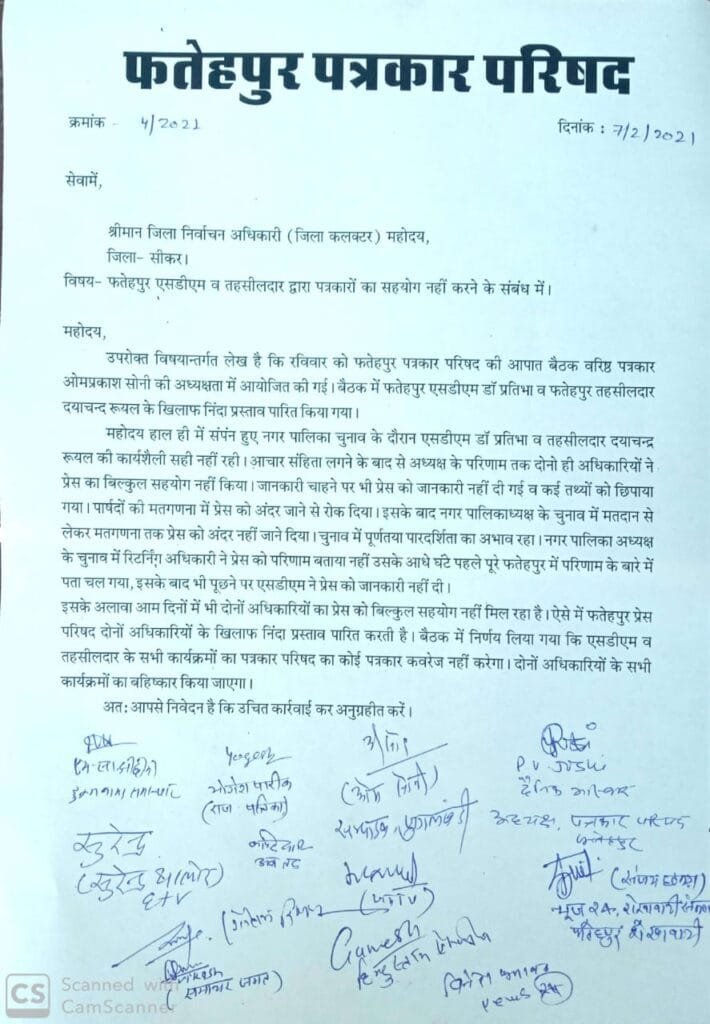 फतेहपुर पत्रकार परिषद
क्रमांक - 4/2021
दिनांक : 7/2/2021
सेवामें,
श्रीमान जिला निर्वाचन अधिकारी (जिला कलक्टर) महोदय,
जिला- सीकर।
विषय- फतेहपुर एसडीएम व तहसीलदार द्वारा पत्रकारों का सहयोग नहीं करने के संबंध में।
महोदय,
उपरोक्त विषयान्तर्गत लेख है कि रविवार को फतेहपुर पत्रकार परिषद की आपात बैठक वरिष्ठ पत्रकार
ओमप्रकाश सोनी की अध्यक्षता में आयोजित की गई। बैठक में फतेहपुर एसडीएम डॉ प्रतिभा व फतेहपुर तहसीलदार
दयाचन्द रूयल के खिलाफ निंदा प्रस्ताव पारित किया गया।
महोदय हाल ही में संपंन हुए नगर पालिका चुनाव के दौरान एसडीएम डॉ प्रतिभा व तहसीलदार दयाचन्द्र
रूयल की कार्यशैली सही नहीं रही। आचार संहिता लगने के बाद से अध्यक्ष के परिणाम तक दोनो ही अधिकारियों ने
प्रेस का बिल्कुल सहयोग नहीं किया। जानकारी चाहने पर भी प्रेस को जानकारी नहीं दी गई व कई तथ्यों को छिपाया
गया। पार्षदों की मतगणना में प्रेस को अंदर जाने से रोक दिया। इसके बाद नगर पालिकाध्यक्ष के चुनाव में मतदान से
लेकर मतगणना तक प्रेस को अंदर नहीं जाने दिया। चुनाव में पूर्णतया पारदर्शिता का अभाव रहा। नगर पालिका अध्यक्ष
के चुनाव में रिटर्निंग अधिकारी ने प्रेस को परिणाम बताया नहीं उसके आधे घंटे पहले पूरे फतेहपुर में परिणाम के बारे में
पता चल गया, इसके बाद भी पूछने पर एसडीएम ने प्रेस को जानकारी नहीं दी।
इसके अलावा आम दिनों में भी दोनों अधिकारियों का प्रेस को बिल्कुल सहयोग नहीं मिल रहा है। ऐसे में फतेहपुर प्रेस
परिषद दोनों अधिकारियों के खिलाफ निंदा प्रस्ताव पारित करती है। बैठक में निर्णय लिया गया कि एसडीएम व
तहसीलदार के सभी कार्यक्रमों का पत्रकार परिषद का कोई पत्रकार कवरेज नहीं करेगा। दोनों अधिकारियों के सभी
कार्यक्रमों का बहिष्कार किया जाएगा।
अत: आपसे निवेदन है कि उचित कार्रवाई कर अनुग्रहीत करें।
Yogesh
योगेश पारीक
(राज. पत्रिका)
P. V. Joshi
दैनिक भास्कर
अध्यक्ष, पत्रकार परिषद
सुरेन्द्र
(सुरेन्द्र
Etv
Ganesh
(समाचार जगत)
CS Scanned with
CamScanner